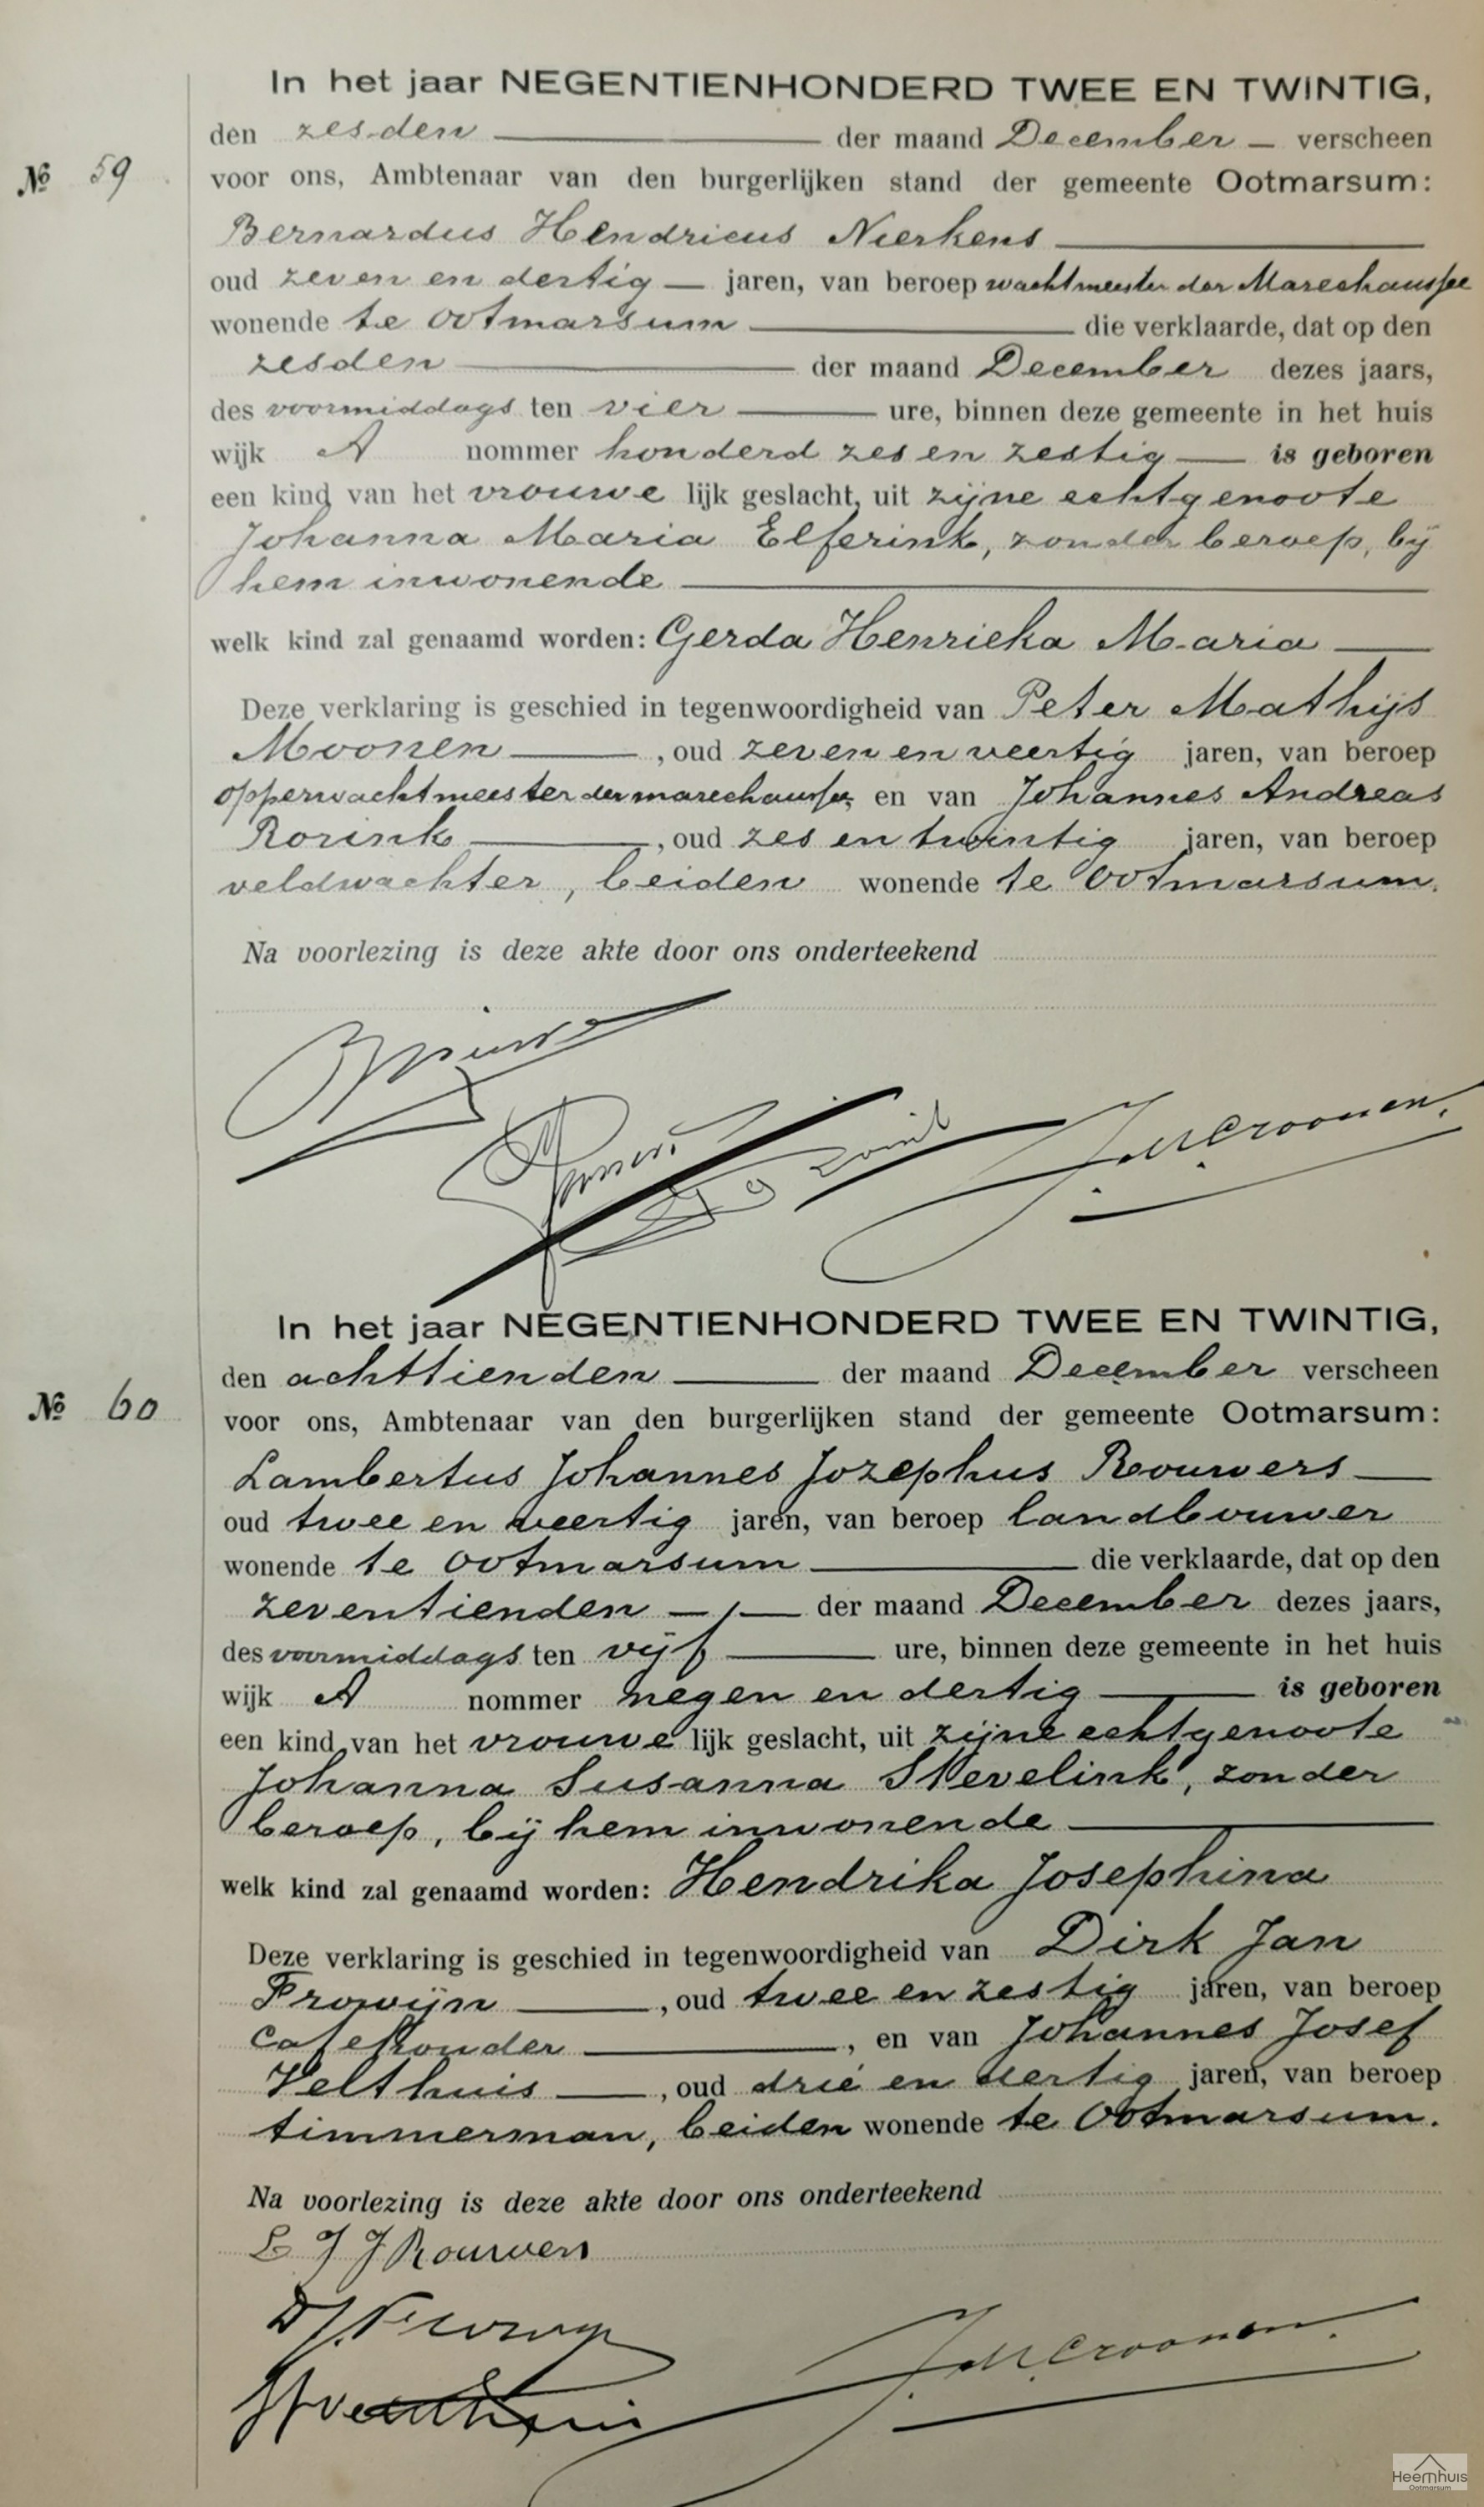 In het jaar NEGENTIENHONDERD TWEE EN TWINTIG,
den zesden der maand December verscheen
No 59
voor ons, Ambtenaar van den burgerlijken stand der gemeente Ootmarsum:
Bernardus Hendricus Nierkens
oud zeven en dertig jaren, van beroep wachtmeester der Marechaussee
wonende te Ootmarsum die verklaarde, dat op den
zesden der maand December dezes jaars,
des voormiddags ten vier ure, binnen deze gemeente in het huis
wijk A nommer honderd zes en zestig is geboren
een kind van het vrouwe lijk geslacht, uit zijne echtgenoote
Johanna Maria Elferink, zonder beroep, bij
hem inwonende
welk kind zal genaamd worden: Gerda Henrieka Maria
Deze verklaring is geschied in tegenwoordigheid van Peter Mathijs
Moonen, oud zeven en veertig jaren, van beroep
opperwachtmeester der marechaussee, en van Johannes Andreas
Rorink, oud zes en twintig jaren, van beroep
veldwachter, beiden wonende te Ootmarsum.
Na voorlezing is deze akte door ons onderteekend
J. M. Croonen.
In het jaar NEGENTIENHONDERD TWEE EN TWINTIG,
den achttienden der maand December verscheen
No 60
voor ons, Ambtenaar van den burgerlijken stand der gemeente Ootmarsum:
Lambertus Johannes Jozephus Rouwers
oud twee en veertig jaren, van beroep landbouwer
wonende te Ootmarsum die verklaarde, dat op den
zeventienden der maand December dezes jaars,
des voormiddags ten vijf ure, binnen deze gemeente in het huis
wijk A nommer negen en dertig is geboren
een kind van het vrouwe lijk geslacht, uit zijne echtgenoote
Johanna Susanna Stevelink, zonder
beroep, bij hem inwonende
welk kind zal genaamd worden: Hendrika Josephina
Deze verklaring is geschied in tegenwoordigheid van Dirk Jan
Frowijn, oud twee en zestig jaren, van beroep
cafehouder, en van Johannes Josef
Velthuis, oud drie en dertig jaren, van beroep
timmerman, beiden wonende te Ootmarsum.
Na voorlezing is deze akte door ons onderteekend
L J J Rouwers
D J Frowijn
J J Velthuis
J. M. Croonen.
Heemhuis
Ootmarsum